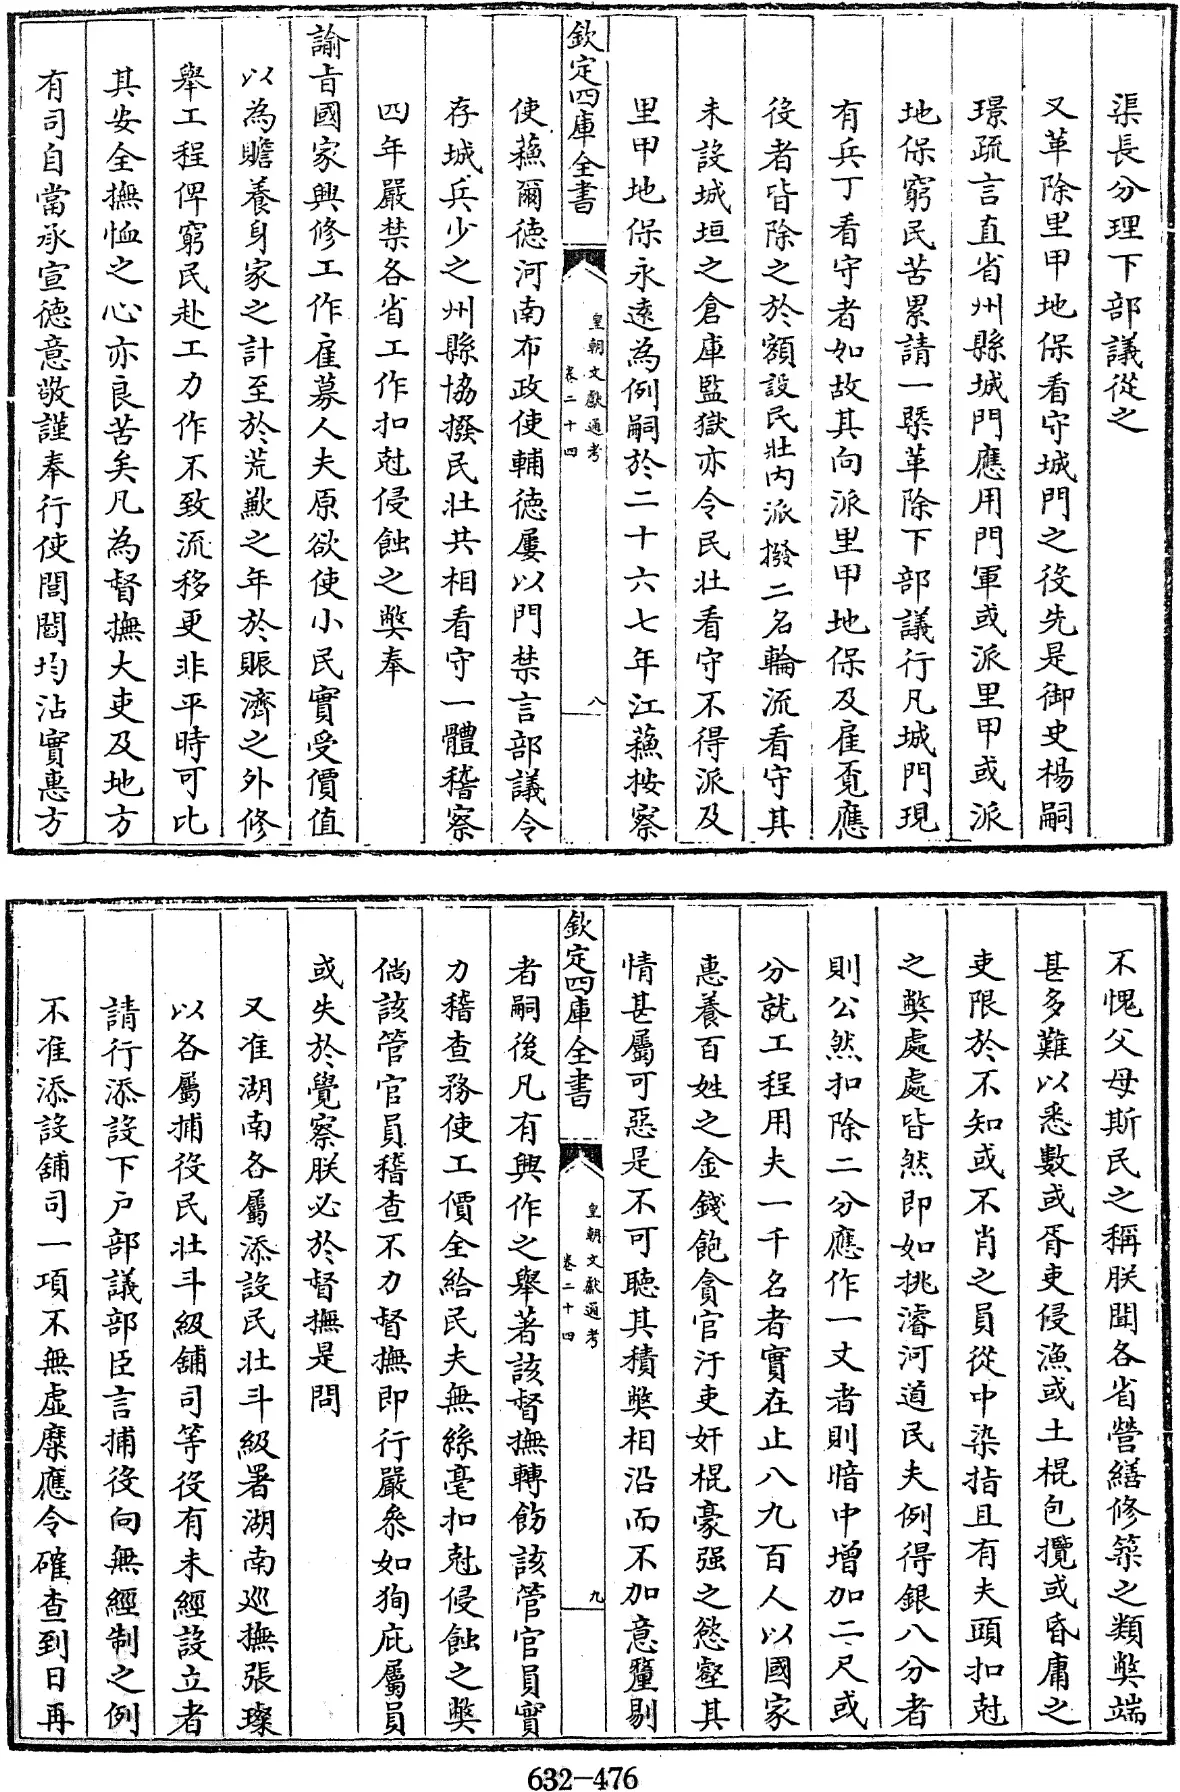 渠長分理下部議從之
又革除里甲地保看守城門之役先是御史楊嗣
璟疏言直省州縣城門應用門軍或派里甲或派
地保窮民苦累請一槩革除下部議行凡城門現
有兵丁看守者如故其向派里甲地保及雇覓應
役者皆除之於額設民壯内派撥二名輪流看守其
未設城垣之倉庫監獄亦令民壯看守不得派及
里甲地保永逺為例嗣於二十六七年江蘓按察
欽定四庫全書
皇朝文獻通考
卷二十四
八
使蘓爾德河南布政使輔德屢以門禁言部議令
存城兵少之州縣協撥民壯共相看守一體稽察
四年嚴禁各省工作扣尅侵蝕之獘奉
諭㫖國家興修工作雇募人夫原欲使小民實受價值
以為贍養身家之計至於荒歉之年於賑濟之外修
舉工程俾窮民赴工力作不致流移更非平時可比
其安全撫恤之心亦良苦矣凡為督撫大吏及地方
有司自當承宣德意敬謹奉行使閭閻均沾實惠方
不愧父母斯民之稱朕聞各省營繕修築之類獘端
甚多難以悉數或胥吏侵漁或土棍包攬或昏庸之
吏限於不知或不肖之員從中染指且有夫頭扣尅
之獘處處皆然即如挑濬河道民夫例得銀八分者
則公然扣除二分應作一丈者則暗中增加二尺或
分就工程用夫一千名者實在止八九百人以國家
惠養百姓之金錢飽貪官汙吏奸棍豪强之慾壑其
情甚屬可惡是不可聽其積獘相沿而不加意釐剔
欽定四庫全書
皇朝文獻通考
卷二十四
九
者嗣後凡有興作之舉著該督撫轉飭該管官員實
力稽查務使工價全給民夫無絲毫扣尅侵蝕之獘
倘該管官員稽查不力督撫即行嚴叅如狥庇屬員
或失於覺察朕必於督撫是問
又准湖南各屬添設民壯斗級署湖南巡撫張璨
以各屬捕役民壯斗級舖司等役有未經設立者
請行添設下户部議部臣言捕役向無經制之例
不准添設舖司一項不無虛糜應令確查到日再
632-476